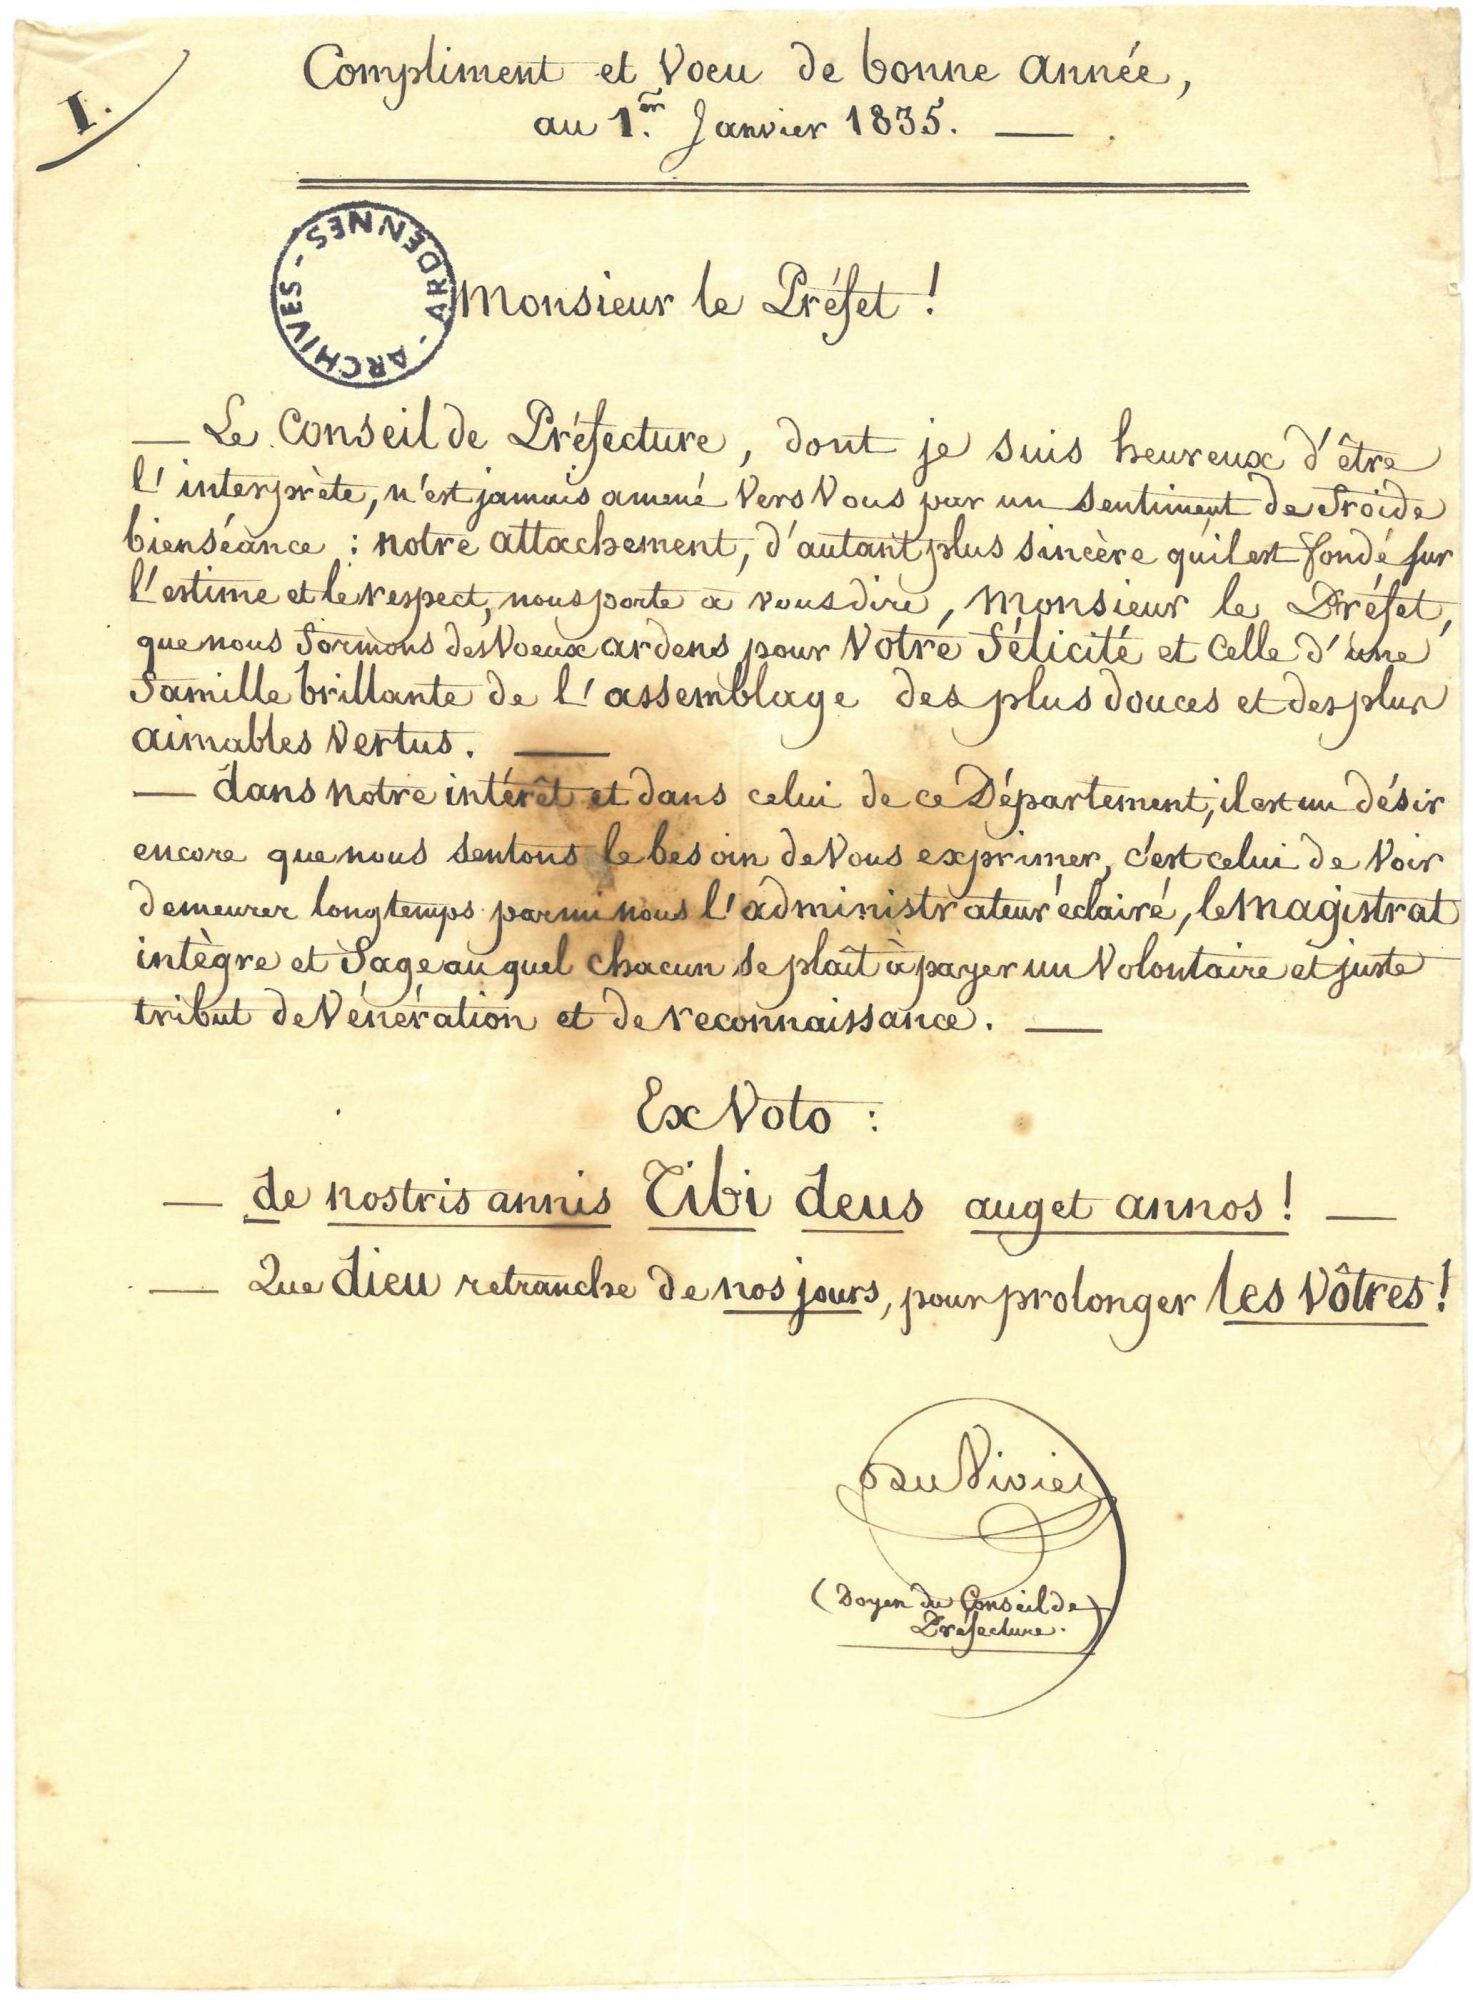 I.
Compliment et Voeu de bonne année,
au 1.er Janvier 1835. —
ARCHIVES - ARDENNES -
Monsieur le Préfet !
— Le Conseil de Préfecture, dont je suis heureux d'être
l'interprète, n'est jamais amené vers vous par un sentiment de froide
bienséance : notre attachement, d'autant plus sincère qu'il est fondé sur
l'estime et le respect, nous porte à vous dire, Monsieur le Préfet,
que nous formons des voeux ardens pour votre félicité et celle d'une
famille brillante de l'assemblage des plus douces et des plus
aimables vertus. —
— dans notre intérêt et dans celui de ce Département, il est un désir
encore que nous sentons le besoin de vous exprimer, c'est celui de voir
demeurer longtemps parmi nous l'administrateur éclairé, le magistrat
intègre et sage auquel chacun se plaît à payer un volontaire et juste
tribut de vénération et de reconnaissance. —
Ex Voto :
— de nostris annis Tibi deus auget annos ! —
— Que dieu retranche de nos jours, pour prolonger les vôtres !
Du Vivier
(Doyen du Conseil de
Préfecture.)